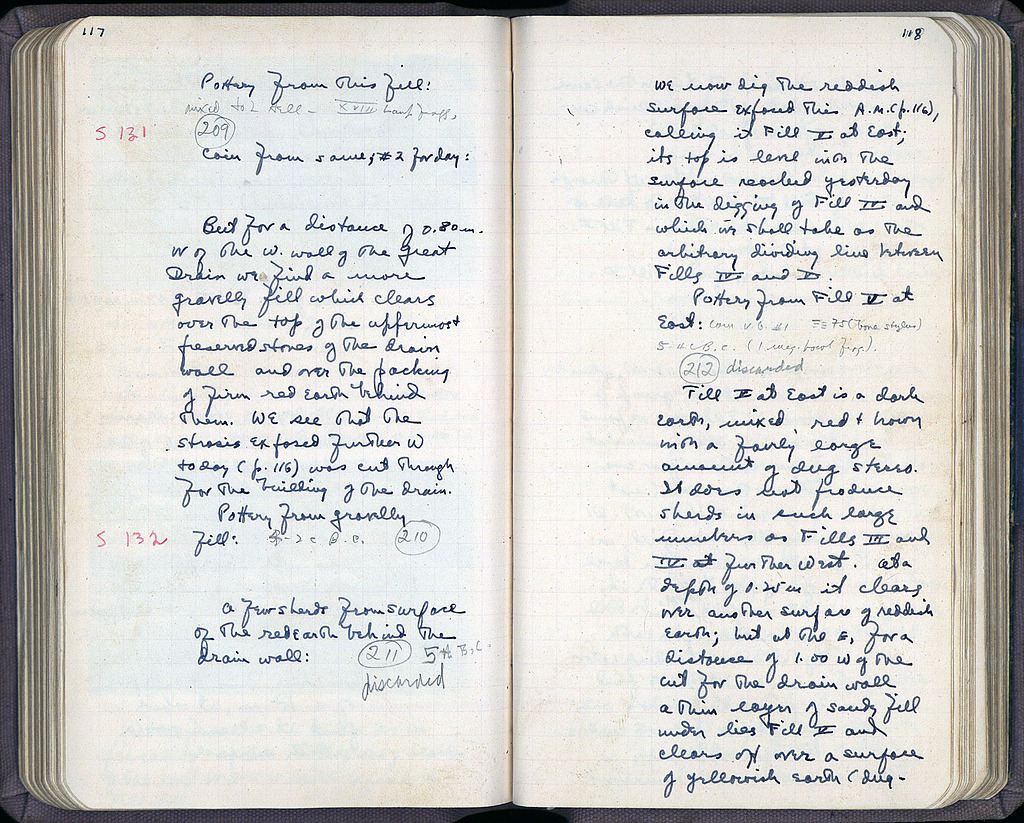 117
Pottery from this fill:
mixed to 2 Hell - XVIII Lamp frags.
S 131
209
Coin from same; #2 for day:
But for a distance of 0.80 m.
W of the W. wall of the Great
Drain we find a more
gravelly fill which clears
over the top of the uppermost
preserved stones of the drain
wall and over the packing
of firm red Earth behind
them. We see that the
strosis exposed further W
today (p. 116) was cut through
for the building of the drain.
Pottery from gravelly
S 132
fill: 4-2 c B.C. 210
A few sherds from surface
of the red Earth behind the
drain wall: 211 5th B.C.
discarded
118
We now dig the reddish
surface exposed this A.M. (p. 116),
calling it Fill V at East;
its top is level with the
surface reached yesterday
in the digging of Fill IV and
which we shall take as the
arbitrary dividing line between
Fills IV and V.
Pottery from Fill V at
East: coin V.B. #1 75 (bone stylus)
5th c B.C. (1 meg. bowl frg.).
212 discarded
Fill V at East is a dark
Earth, mixed, red + brown
with a fairly large
amount of dug stereo.
It does not produce
sherds in such large
numbers as Fills III and
IV at further West. At a
depth of 0.25 m it clears
over another surface of reddish
Earth; but at the E, for a
distance of 1.00 W of the
cut for the drain wall
a thin layer of sandy fill
under lies Fill V and
clears off over a surface
of yellowish Earth (dug-